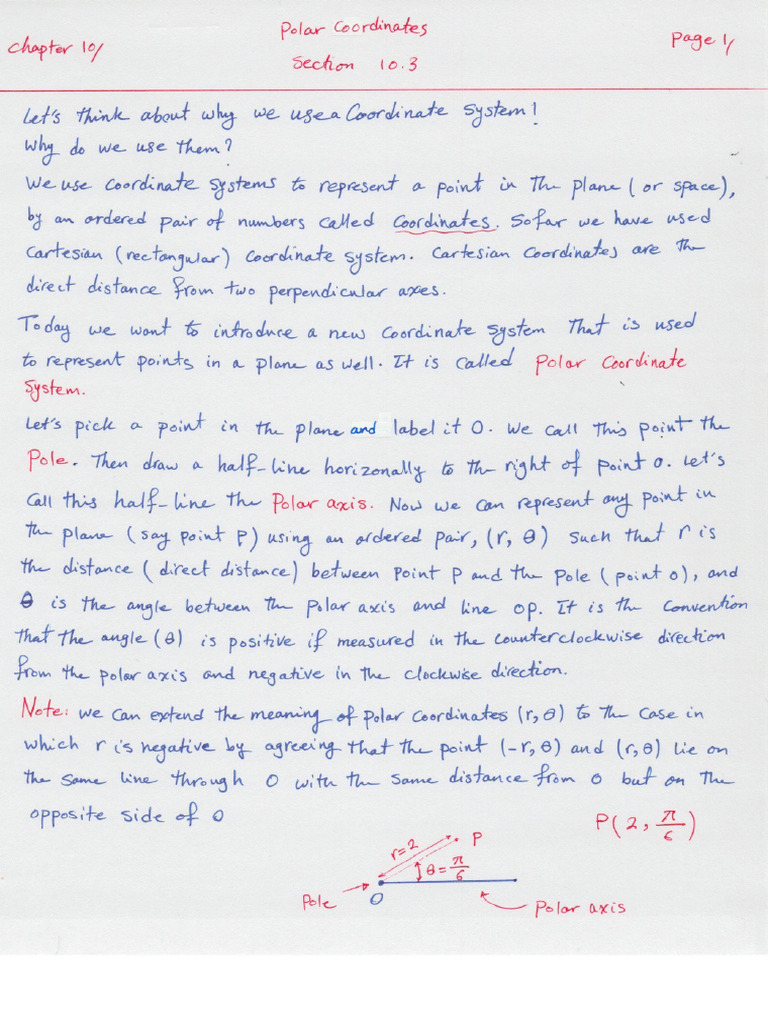 Polar Coordinates
Chapter 10/
Page 1/
Section 10.3
Let's think about why we use a Coordinate System!
Why do we use them?
We use coordinate systems to represent a point in the plane (or space),
by an ordered pair of numbers called Coordinates. So far we have used
Cartesian (rectangular) coordinate system. Cartesian Coordinates are the
direct distance from two perpendicular axes.
Today we want to introduce a new coordinate system that is used
to represent points in a plane as well. It is called Polar Coordinate
System.
Let's pick a point in the plane and label it O. We call this point the
Pole. Then draw a half-line horizonally to the right of point O. Let's
call this half-line the Polar axis. Now we can represent any point in
the plane (say point P) using an ordered pair, (r, θ) such that r is
the distance (direct distance) between Point P and the Pole (point O), and
θ is the angle between the Polar axis and line OP. It is the convention
that the angle (θ) is positive if measured in the counterclockwise direction
from the polar axis and negative in the clockwise direction.
Note: we can extend the meaning of Polar coordinates (r, θ) to the case in
which r is negative by agreeing that the point (-r, θ) and (r, θ) lie on
the same line through O with the same distance from O but on the
opposite side of O
P(2, π/6)
P
r=2
θ=π/6
Pole
O
Polar axis